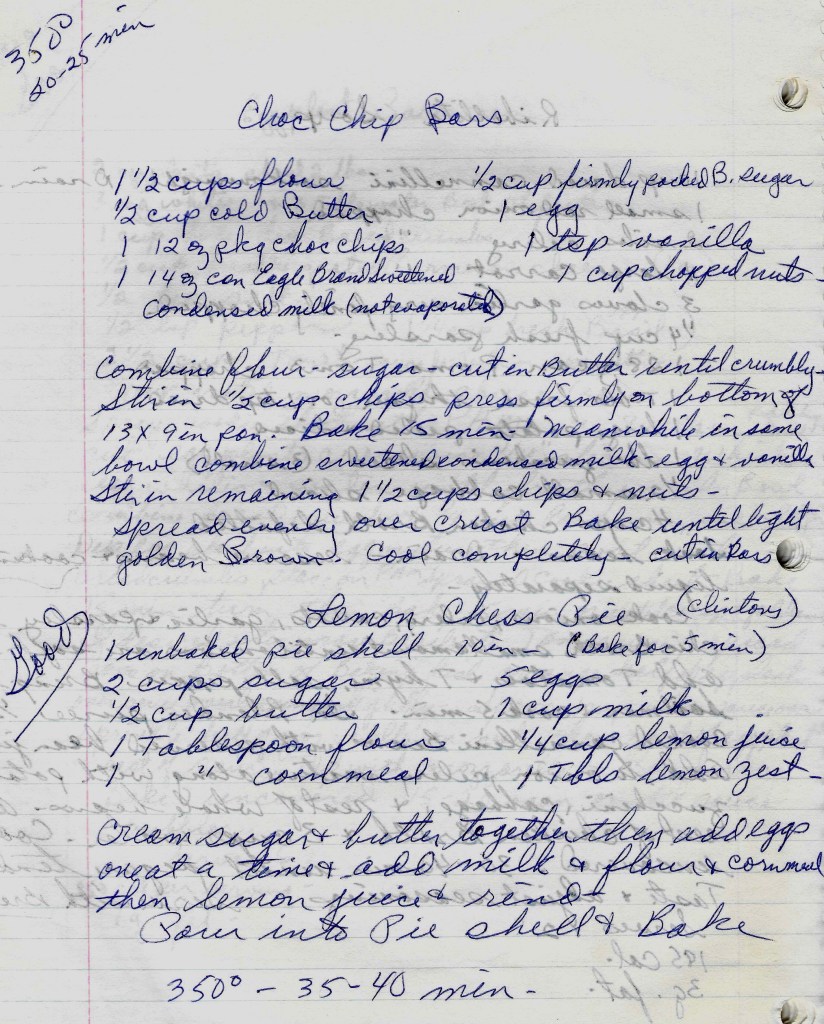 350°
20-25 min
Choc Chip Bars
1 1/2 cups flour 1/2 cup firmly packed B. sugar
1/2 cup cold Butter 1 egg
1 12 oz pkg choc chips 1 tsp vanilla
1 14 oz can Eagle Brand Sweetened 1 cup chopped nuts -
Condensed milk (not evaporated)
Combine flour - sugar - cut in Butter until crumbly -
Stir in 1/2 cup chips press firmly on bottom of
13 x 9 in pan. Bake 15 min - Meanwhile in same
bowl combine sweetened condensed milk - egg & vanilla
Stir in remaining 1 1/2 cups chips & nuts -
Spread evenly over crust Bake until light
golden Brown. Cool completely - cut in Bars
Lemon Chess Pie (Clintons)
Good
1 unbaked pie shell 10 in - (Bake for 5 min)
2 cups sugar 5 eggs
1/2 cup butter 1 cup milk
1 Tablespoon flour 1/4 cup lemon juice
1 " cornmeal 1 Tbls lemon zest -
Cream sugar & butter together then add eggs
one at a time & add milk & flour & cornmeal
then lemon juice & rind -
Pour into Pie shell & Bake
350° - 35-40 min -